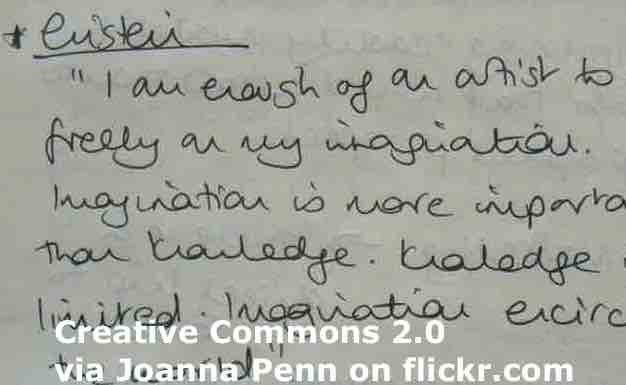 * Einstein
" I am enough of an artist to
freely on my imagination.
Imagination is more importa
than knowledge. Knowledge
limited. Imagination encirc
the world"
Creative Commons 2.0
via Joanna Penn on flickr.com